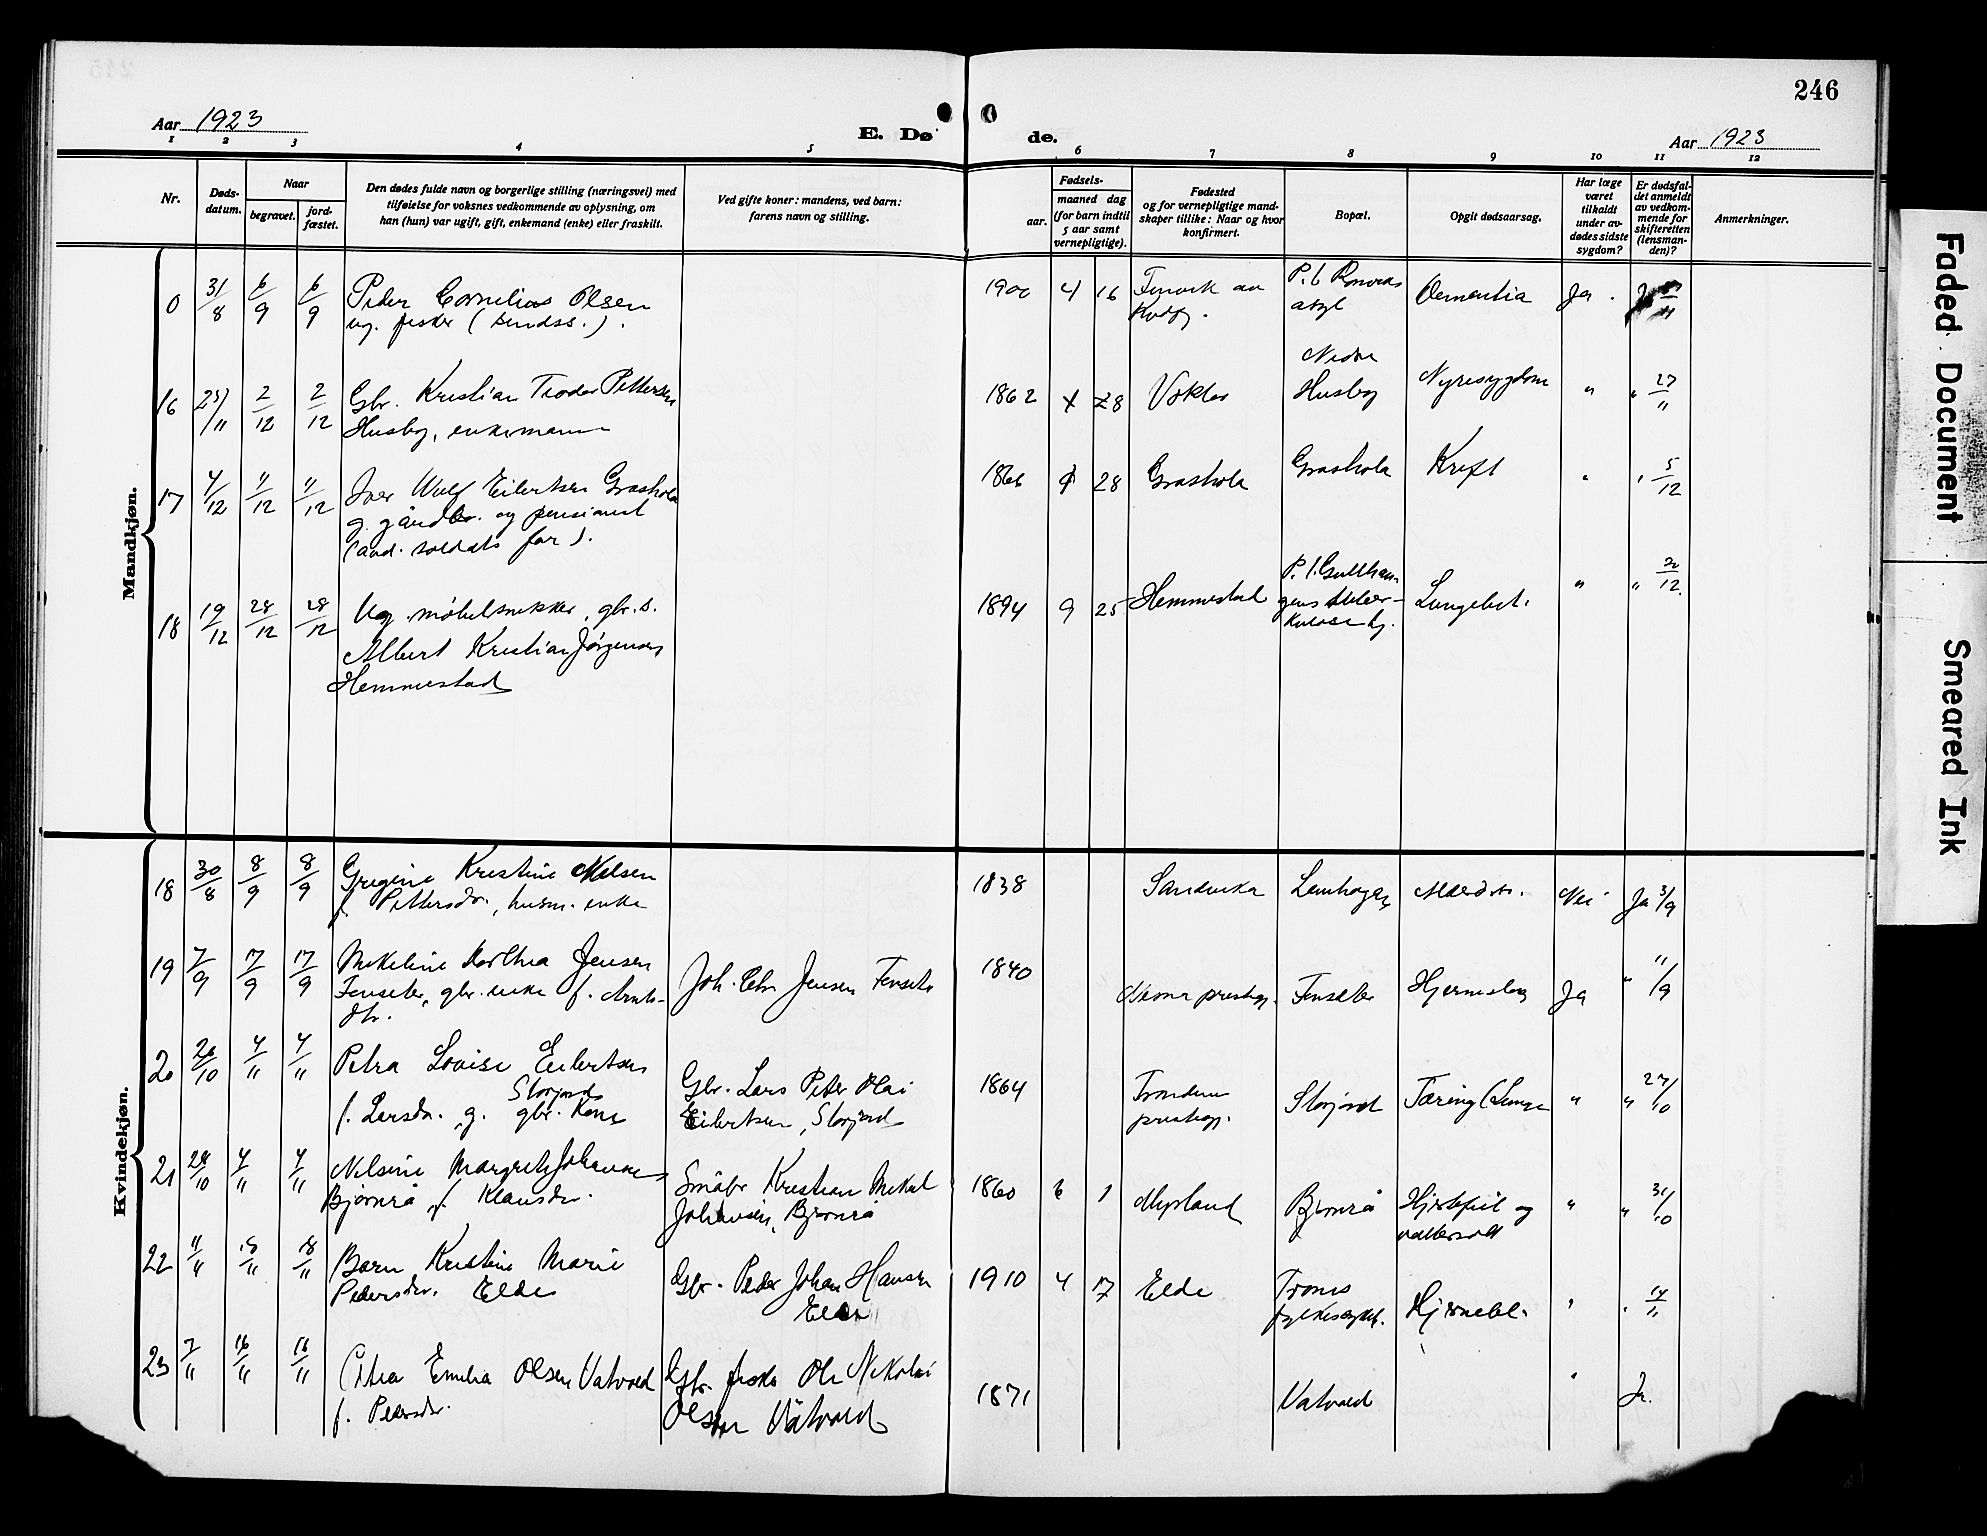 246
Aar 1923
E. Dø
de.
Aar 1923
1 2 3 4 5 6 7 8 9 10 11 12
Nr.
Døds-
datum.
Naar
begravet.
jord-
fæstet.
Den dødes fulde navn og borgerlige stilling (næringsvei) med
tilføielse for voksnes vedkommende av oplysning, om
han (hun) var ugift, gift, enkemand (enke) eller fraskilt.
Ved gifte koner: mandens, ved barn:
farens navn og stilling.
Fødsels-
aar.
maaned dag
(for barn indtil
5 aar samt
vernepligtige).
Fødested
og for vernepligtige mand-
skaper tillike: Naar og hvor
konfirmert.
Bopæl.
Opgit dødsaarsag.
Har læge
været
tilkaldt
under av-
dødes sidste
sygdom?
Er dødsfal-
det anmeldt
av vedkom-
mende for
skifteretten
(lensman-
den)?
Anmerkninger.
Mandkjøn.
0 31/8 6/9 6/9 Peder Cornelius Olsen 1900 4 16 asyl Dementia Ja.
ug. fisker
16 2/12 2/12 Gbr. Kristian Teodor Pettersen 1862 28 Nedre Husby Nyresygdom " " 27/11
Husby, enkemann
17 4/12 11/12 11/12 Iver Wulf Eilertsen Grashola 1866 28 Grashola Grashola Kreft " " 5/12
g. gårdbr. og pensionist
(avd. soldats far).
18 19/12 28/12 28/12 Ug. møbelsnekker, gbr.s. 1894 9 25 Hemmestad " "
Albert Kristian Jørgensen
Hemmestad
Kvindekjøn.
18 30/8 8/9 8/9 Gregine Kristine Nilsen 1838 Sandvika Lemhogen Alderd. Nei Ja 3/9
f. Pettersdr., husm. enke
19 7/9 17/9 17/9 Mekeline Marthea Jensen Joh. Chr. Jensen Tenseter 1840 prestegj. Tenseter Ja " 11/9
Tenseter, gbr. enke f. Arnts-
dtr.
20 26/10 4/11 4/11 Petra Lovise Eilertsen Gbr. Lars Peter Olai 1864 Trondenes Storjord Tæring (Lunge " " 27/10
Storjord
f. Larsdr. g. gbr. kone Eilertsen, Storjord prestegj.
21 28/10 4/11 4/11 Nilsine Margrete Johansen Småbr Kristian Mekal 1860 6 1 Myrland Bjørnrå Hjertefeil og " " 31/10
Bjørnrå, f. Klausdr. Johansen, Bjørnrå vattersott
22 11/11 18/11 18/11 Barn Kristine Marie Gbr. Peder Johan Hansen 1910 4 17 Elde Troms Hjernebl. " " 14/11
Pedersdr. Elde Elde fylkessykeh.
23 7/11 16/11 16/11 Petra Emilia Olsen Vatvold Gbr. fisker Ole Nikolai 1871 Vatvold " Ja.
f. Pedersdr. Olsen Vatvold
Faded Document
Smeared Ink